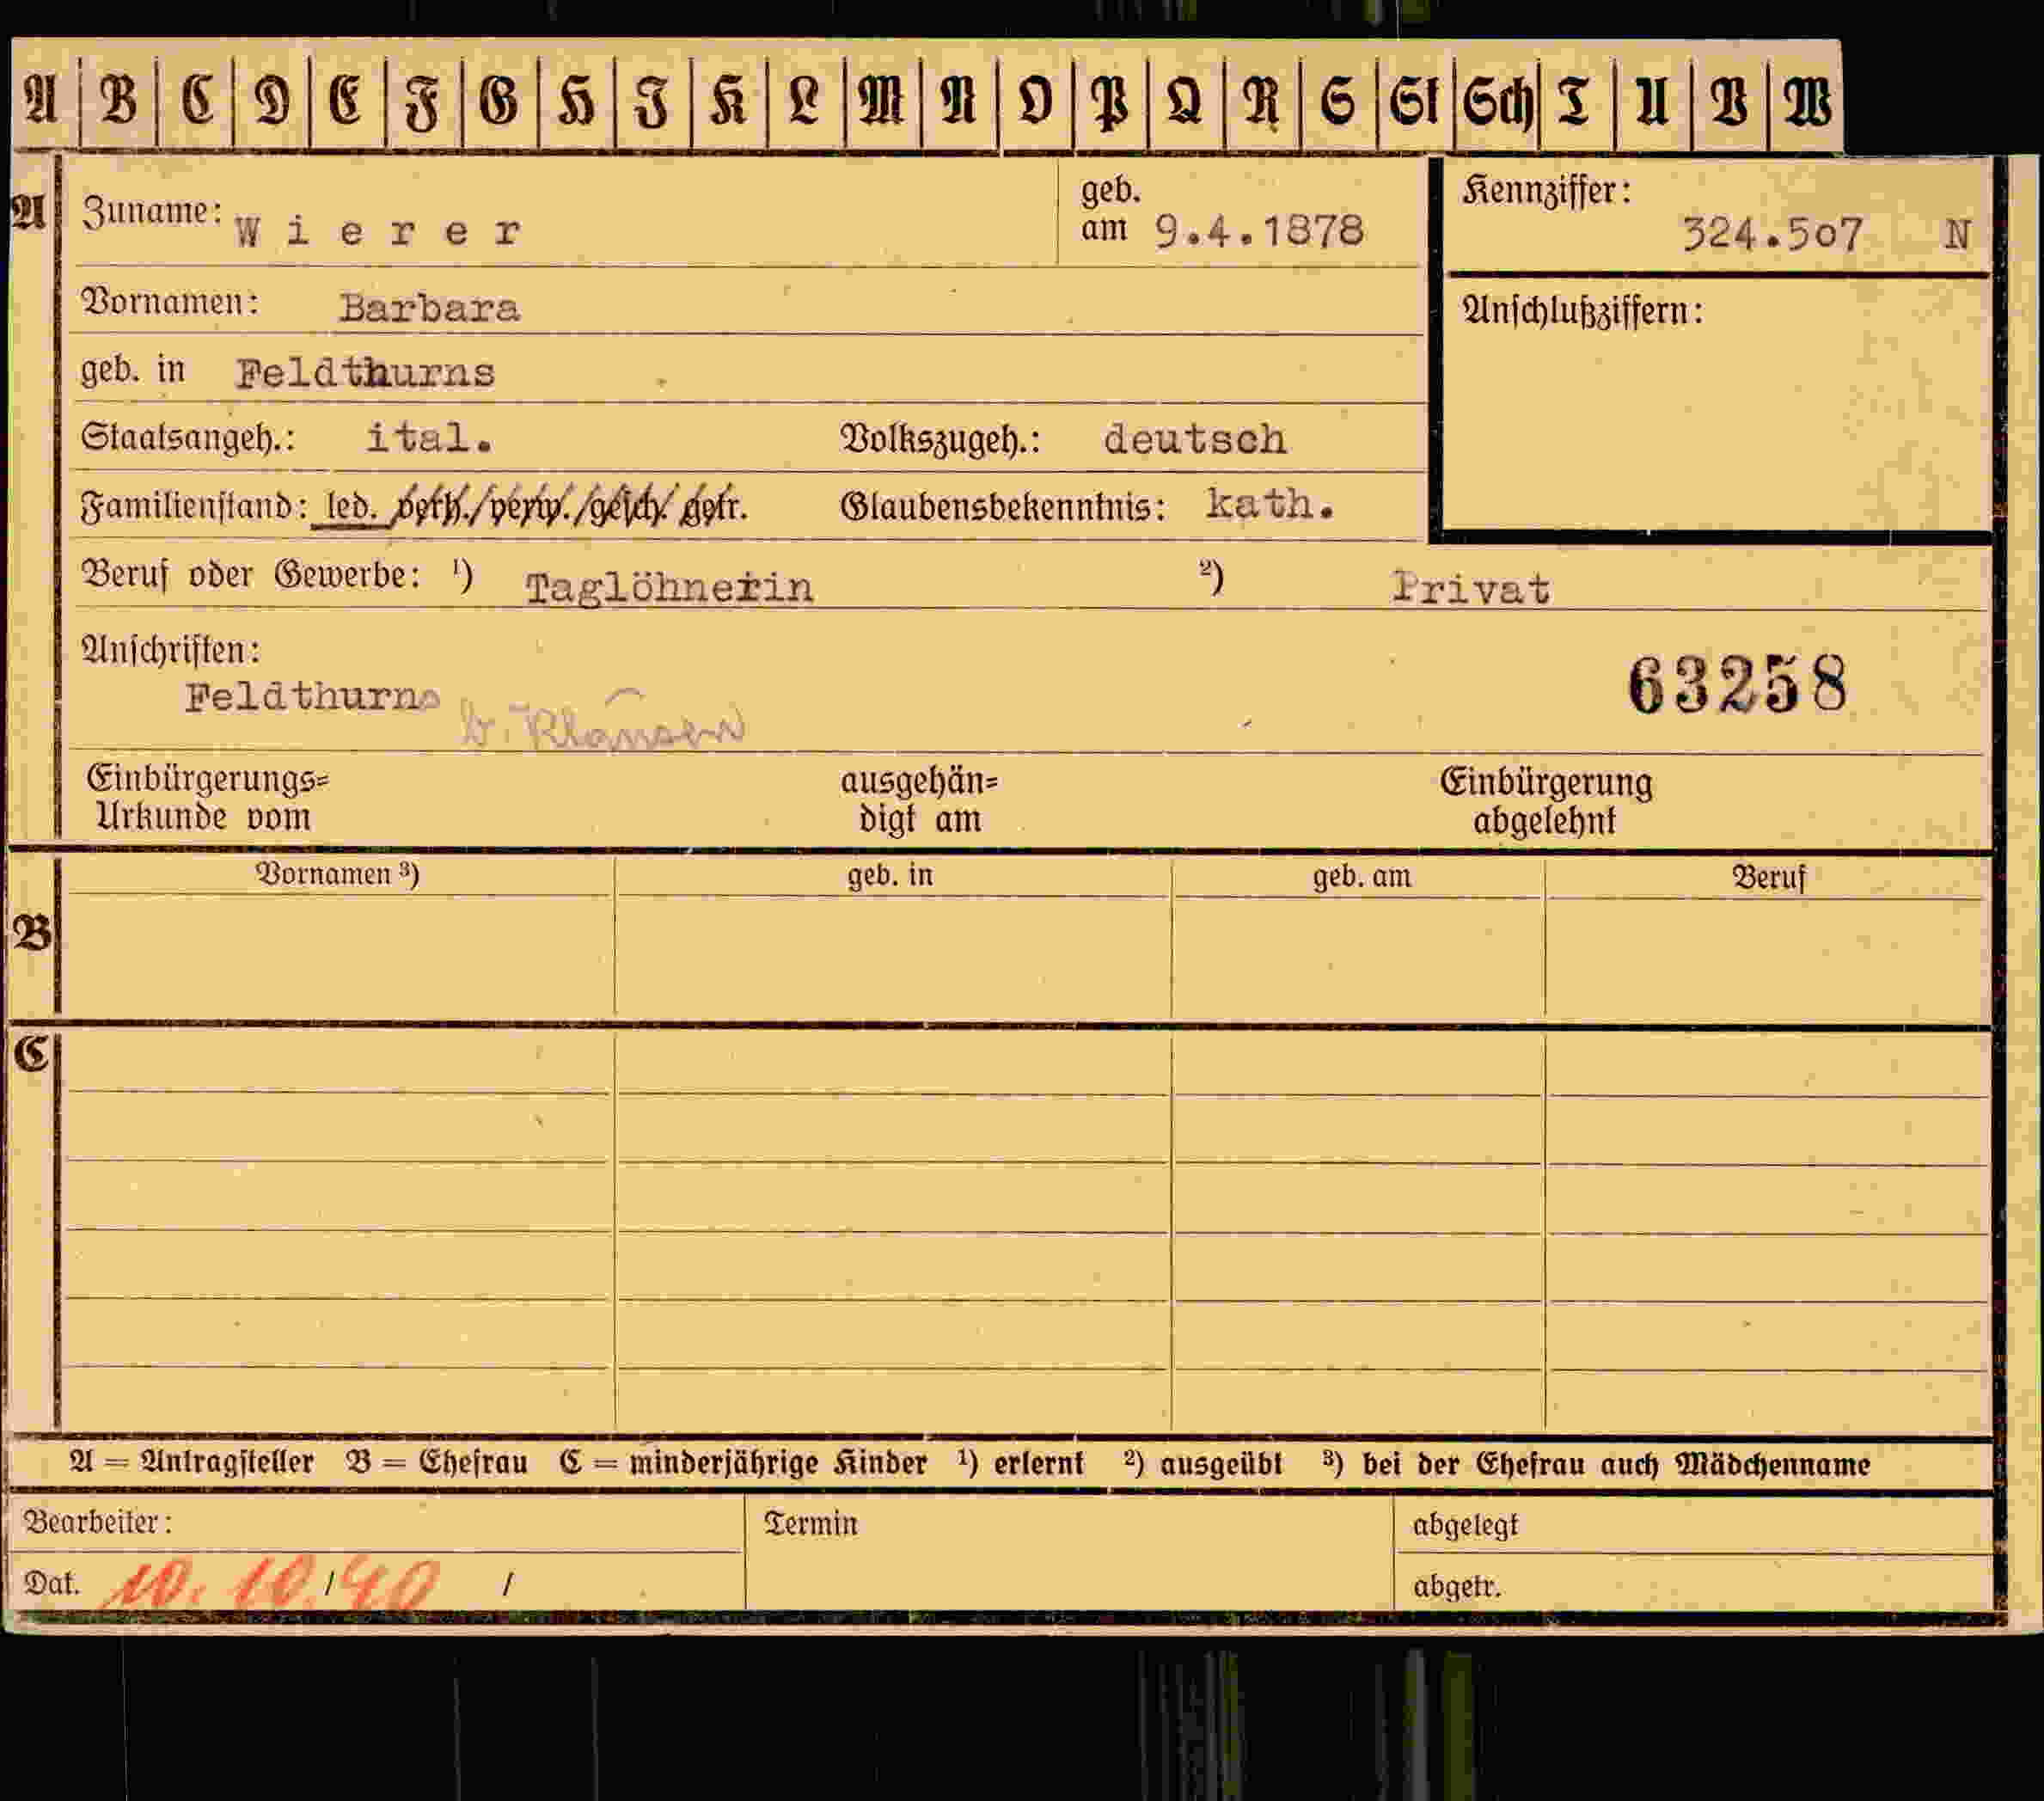 A B C D E F G H I K L M N O P Q R S St Sch T U V W
A Zuname: Wierer geb. am 9.4.1878 Kennziffer: 324.507 N
Vornamen: Barbara Anschlußziffern:
geb. in Feldthurns
Staatsangeh.: ital. Volkszugeh.: deutsch
Familienstand: led. verh./verw./gesch. getr. Glaubensbekenntnis: kath.
Beruf oder Gewerbe: ¹) Taglöhnerin ²) Privat
Anschriften:
Feldthurns b. Klausen 63258
Einbürgerungs= ausgehän= Einbürgerung
Urkunde vom digt am abgelehnt
Vornamen ³) geb. in geb. am Beruf
B
C
A = Antragsteller B = Ehefrau C = minderjährige Kinder ¹) erlernt ²) ausgeübt ³) bei der Ehefrau auch Mädchenname
Bearbeiter: Termin abgelegt
Dat. 10. 10./40 / abgetr.